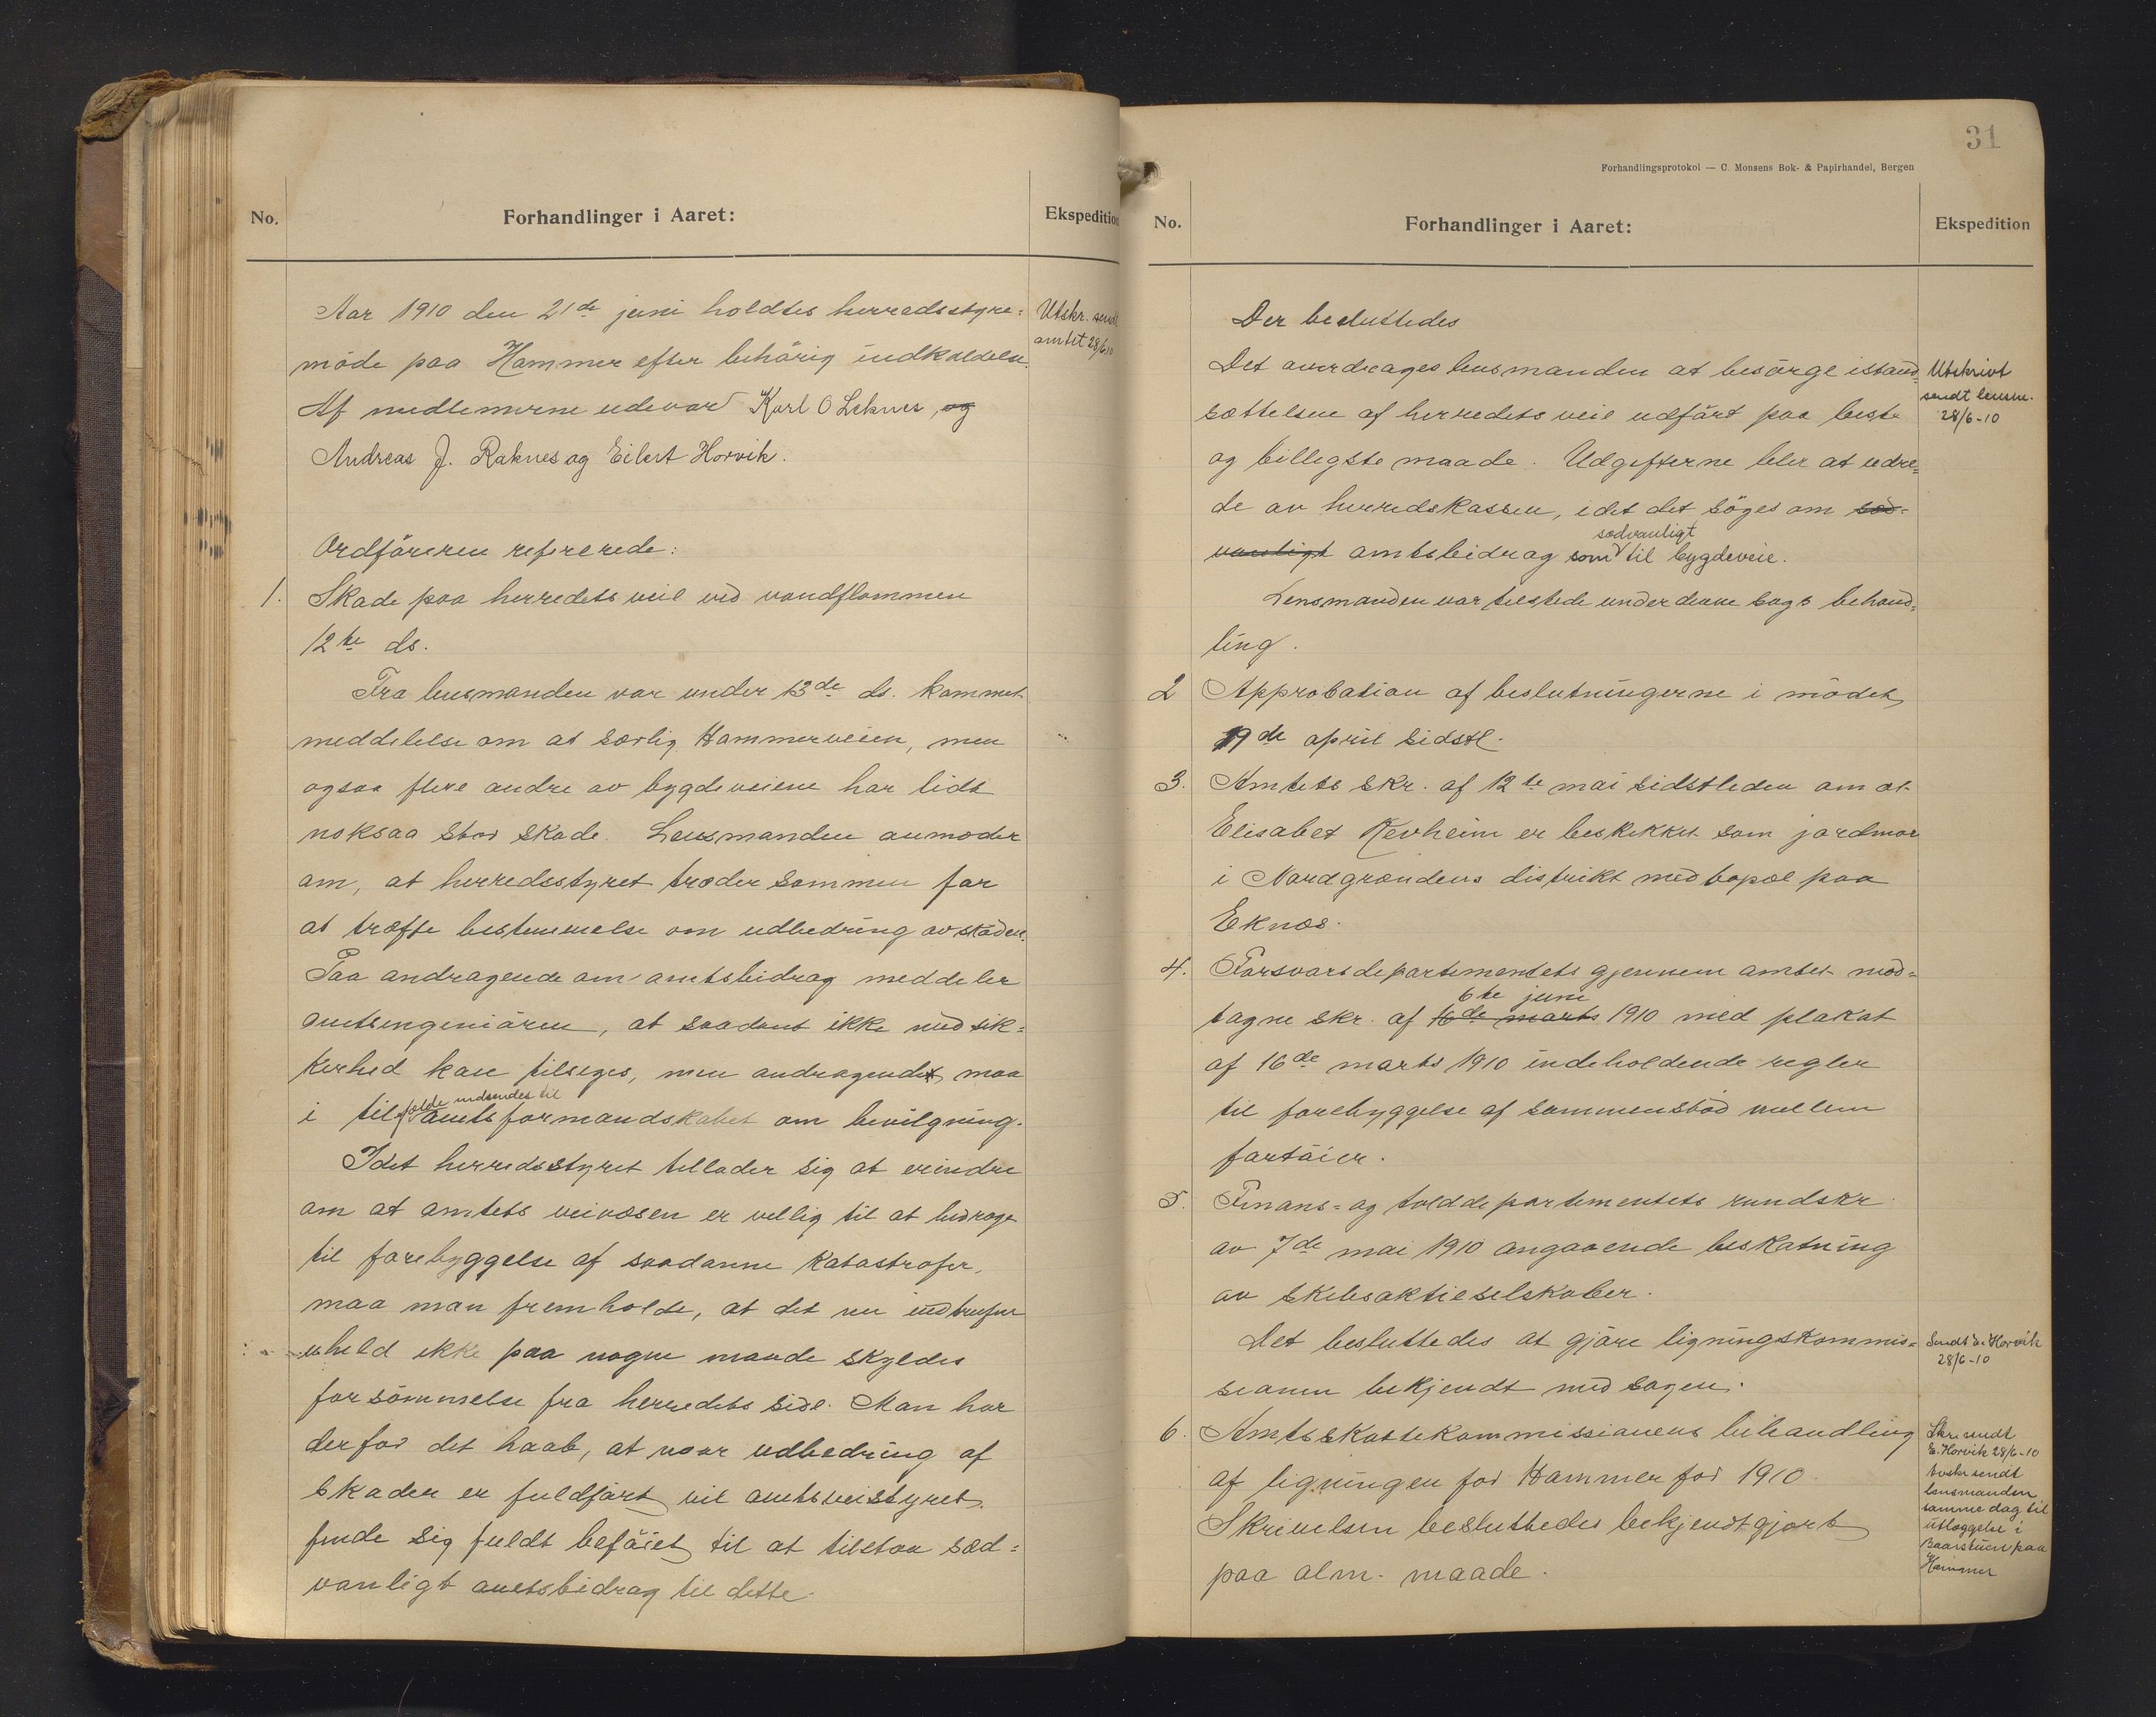 No.
Forhandlinger i Aaret:
Ekspedition
Aar 1910 den 21de juni holdtes herredsstyre=
møde paa Hammer efter behørig indkaldelse.
Af medlemerne udevar Karl O Leknes, og
Andreas J. Raknes og Eilert Horvik.
Utskr. sendt
amtet 28/6 10
Ordføreren refererede:
1. Skade paa herredets veie ved vandflommen
12te ds.
Fra lensmanden var under 13de ds. kommet
meddelelse om at særlig Hammerveien, men
ogsaa flere andre av bygdeveiene har lidt
noksaa stor skade. Lensmanden anmoder
om, at herredsstyret træder sammen for
at træffe bestemmelse om udbedring av skaden.
Paa andragende om amtsbidrag meddeler
amtsingeniøren, at saadant ikke med sik=
kerhed kan tilsiges, men andragendet maa
i tilfælde indsendes til amtsformandskabet om bevilgning.
Idet herredsstyret tillader sig at erindre
om at amtets veivæsen er villig til at bidrage
til forebyggelse af saadanne katastrofer,
maa man fremholde, at det nu indtrufne
uheld ikke paa nogen maade skyldes
forsømmelse fra herredets side. Man har
derfor det haab, at naar udbedring af
skaden er fuldført vil amtsveistyret
finde sig fuldt beføiet til at tilstaa sæd=
vanligt amtsbidrag til dette.
31
Forhandlingsprotokol — C. Monsens Bok- & Papirhandel, Bergen
No.
Forhandlinger i Aaret:
Ekspedition
Der besluttedes
Det overdrages lensmanden at besørge istand=
sættelsen af herredets veie udført paa beste
og billigste maade. Udgifterne blir at udre=
de av herredskassen, idet det søges om sæd=
vanligt amtsbidrag som sædvanligt til bygdeveie.
Utskrivt
sendt lensm.
28/6-10
Lensmanden var tilstede under denne sags behand=
ling.
2 Approbation af beslutningerne i mødet
19de april sidstl.
3. Amtets skr. af 12te mai sidstleden om at
Elisabet Revheim er beskikket som jordmor
i Nordgrændens distrikt med bopæl paa
Eknæs.
4. Forsvarsdepartementets gjennem amtet mod=
tagne skr. af 16de marts 6te juni 1910 med plakat
af 16de marts 1910 indeholdende regler
til forebyggelse af sammenstød mellem
fartøier.
5. Finans= og tolddepartementets rundskr
av 7de mai 1910 angaaende beskatning
av skibsaktieselskaber.
Det besluttedes at gjøre ligningskommis=
sionen bekjendt med sagen.
Sendt E. Horvik
28/6-10
6. Amtsskattekommissionens behandling
af ligningen for Hammer for 1910
Skrivelsen besluttedes bekjendtgjort
paa alm. maade.
Skr. sendt
E. Horvik 28/6-10
sendt
lensmanden
samme dag til
utlæggelse i
paa
Hammer